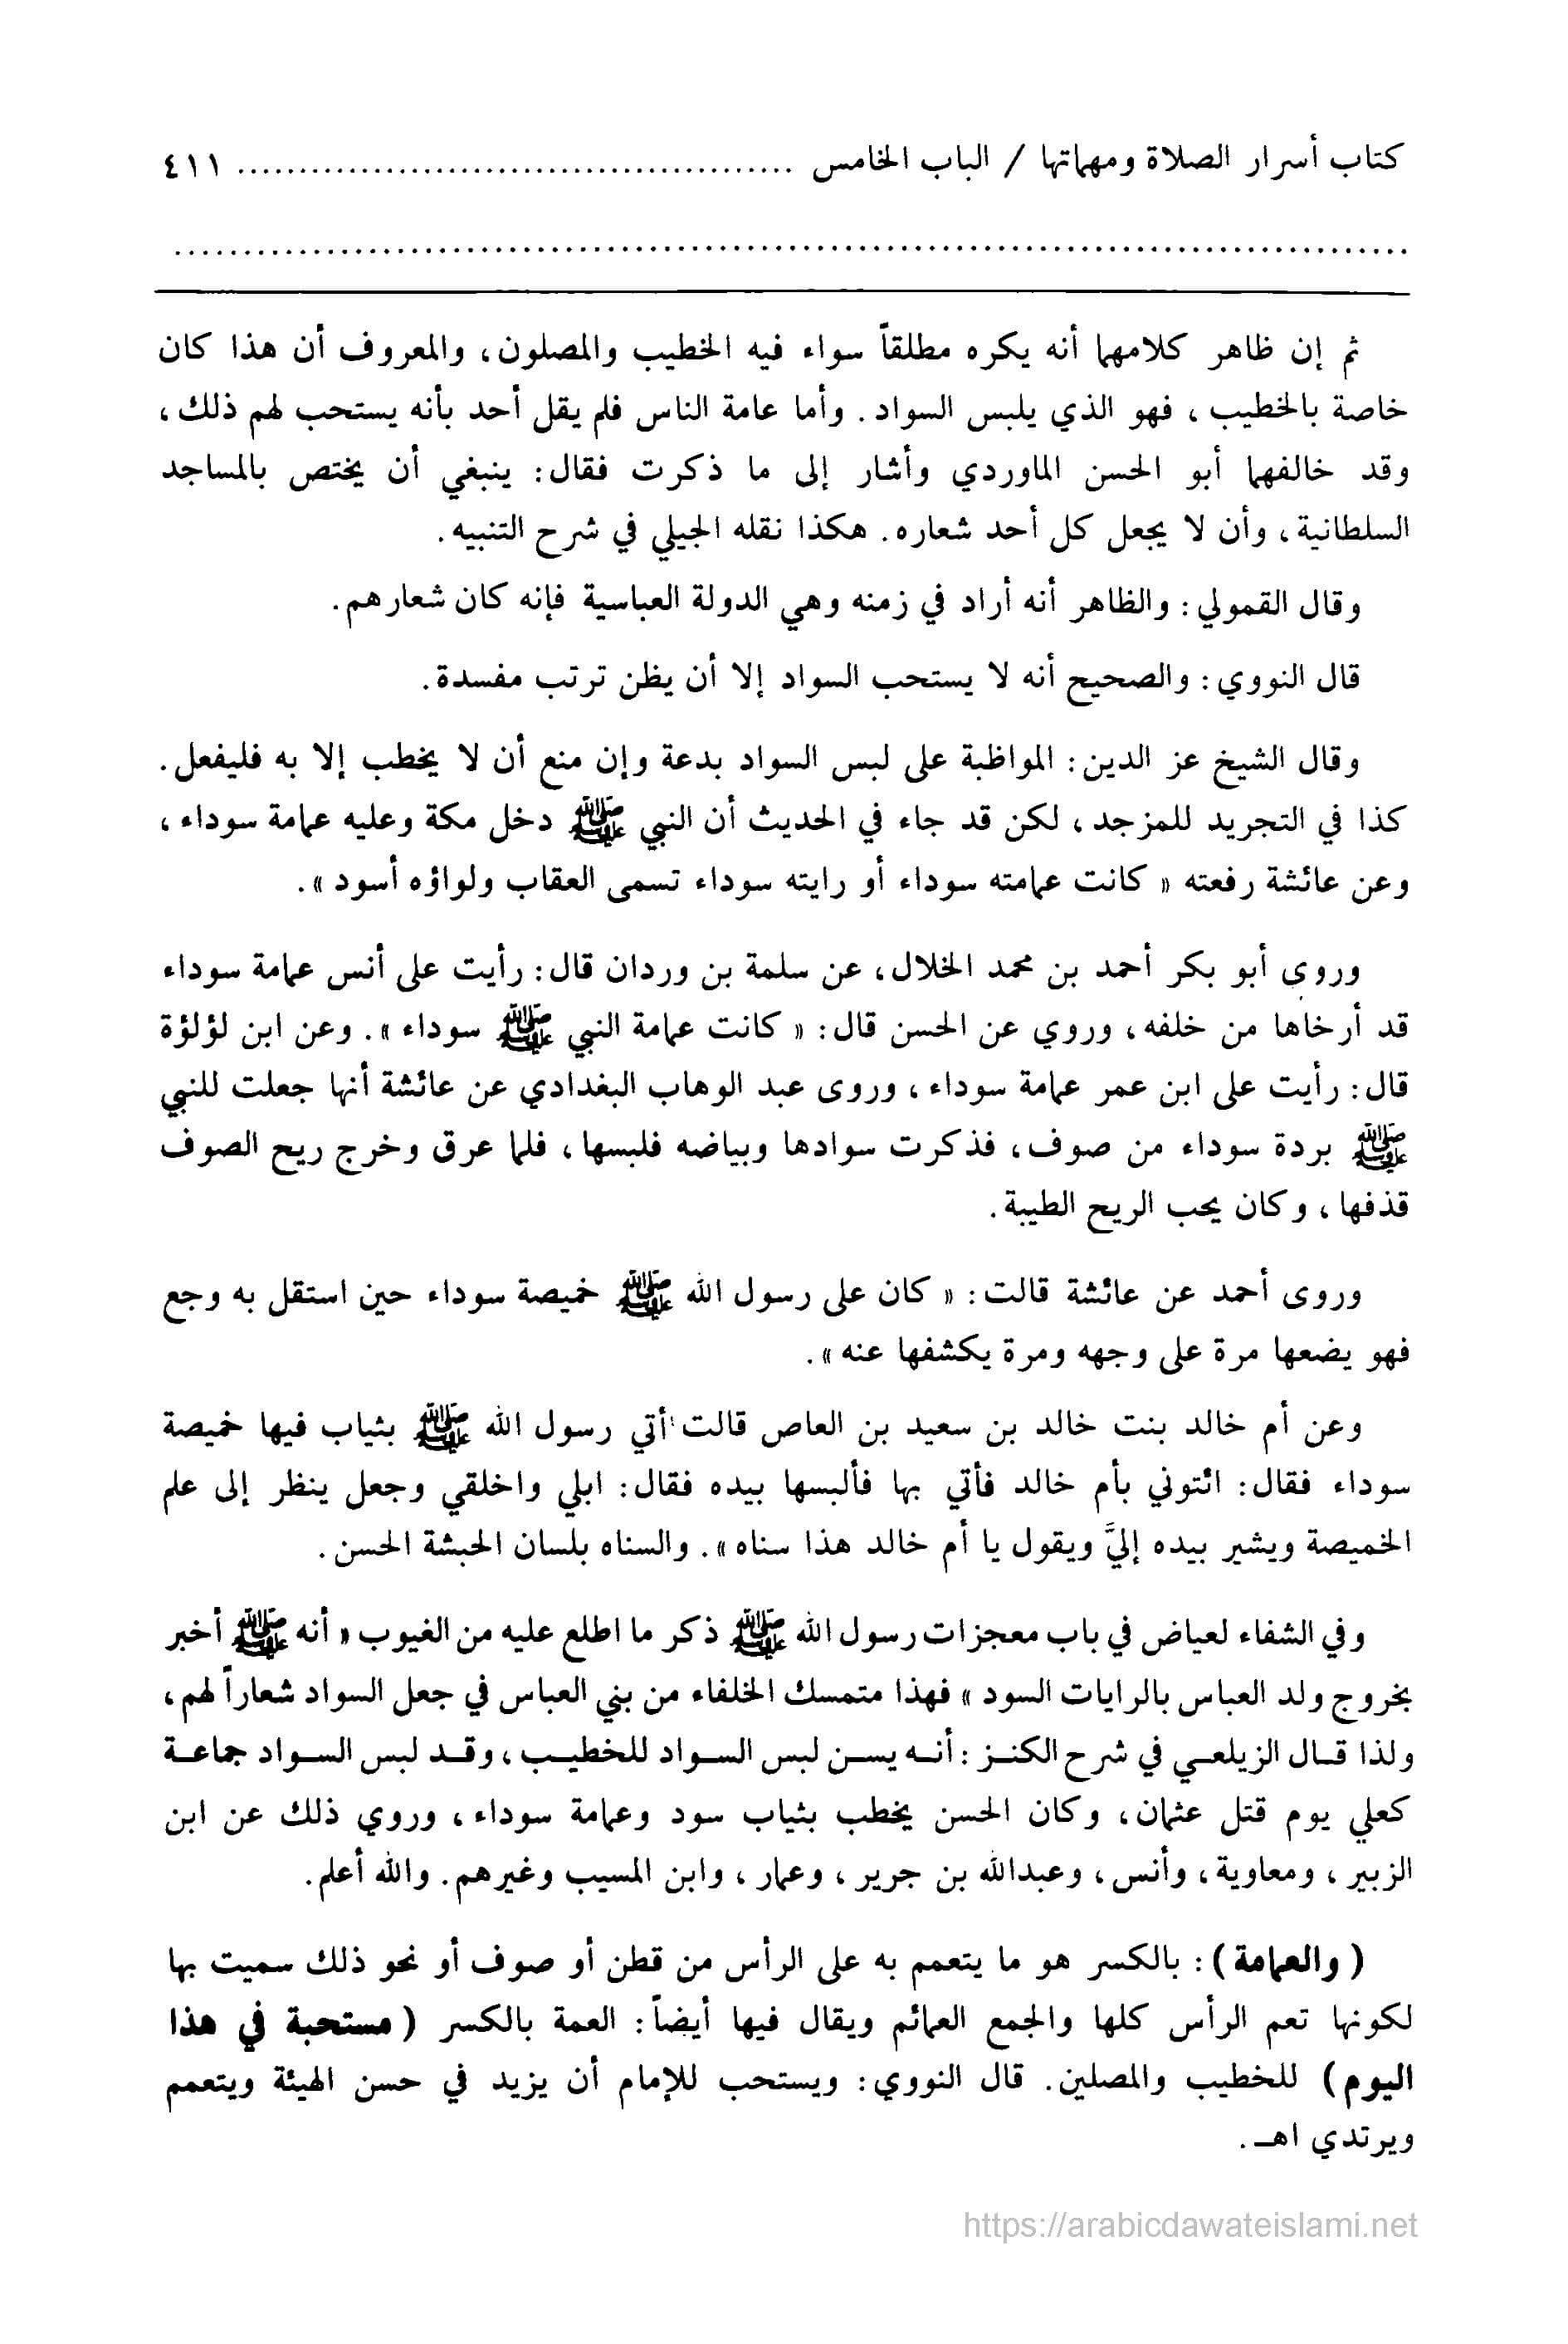 كتاب أسرار الصلاة ومهماتها / الباب الخامس .............................................. ٤١١
..........................................................................................
ثم إن ظاهر كلامهما أنه يكره مطلقاً سواء فيه الخطيب والمصلون، والمعروف أن هذا كان
خاصة بالخطيب، فهو الذي يلبس السواد. وأما عامة الناس فلم يقل أحد بأنه يستحب لهم ذلك،
وقد خالفهما أبو الحسن الماوردي وأشار إلى ما ذكرت فقال: ينبغي أن يختص بالمساجد
السلطانية، وأن لا يجعل كل أحد شعاره. هكذا نقله الجيلي في شرح التنبيه.
وقال القمولي: والظاهر أنه أراد في زمنه وهي الدولة العباسية فإنه كان شعارهم.
قال النووي: والصحيح أنه لا يستحب السواد إلا أن يظن ترتب مفسدة.
وقال الشيخ عز الدين: المواظبة على لبس السواد بدعة وإن منع أن لا يخطب إلا به فليفعل.
كذا في التجريد للمزجد، لكن قد جاء في الحديث أن النبي ﷺ دخل مكة وعليه عمامة سوداء،
وعن عائشة رفعته « كانت عمامته سوداء أو رايته سوداء تسمى العقاب ولواؤه أسود ».
وروى أبو بكر أحمد بن محمد الخلال، عن سلمة بن وردان قال: رأيت على أنس عمامة سوداء
قد أرخاها من خلفه، وروي عن الحسن قال: « كانت عمامة النبي ﷺ سوداء ». وعن ابن لؤلؤة
قال: رأيت على ابن عمر عمامة سوداء، وروى عبد الوهاب البغدادي عن عائشة أنها جعلت للنبي
ﷺ بردة سوداء من صوف، فذكرت سوادها وبياضه فلبسها، فلما عرق وخرج ريح الصوف
قذفها، وكان يحب الريح الطيبة.
وروى أحمد عن عائشة قالت: « كان على رسول الله ﷺ خميصة سوداء حين استقل به وجع
فهو يضعها مرة على وجهه ومرة يكشفها عنه ».
وعن أم خالد بنت خالد بن سعيد بن العاص قالت أتي رسول الله ﷺ بثياب فيها خميصة
سوداء فقال: ائتوني بأم خالد فأتي بها فألبسها بيده فقال: ابلي واخلقي وجعل ينظر إلى علم
الخميصة ويشير بيده إليَّ ويقول يا أم خالد هذا سناه ». والسناه بلسان الحبشة الحسن.
وفي الشفاء لعياض في باب معجزات رسول الله ﷺ ذكر ما اطلع عليه من الغيوب « أنه ﷺ أخبر
بخروج ولد العباس بالرايات السود » فهذا متمسك الخلفاء من بني العباس في جعل السواد شعاراً لهم،
ولذا قال الزيلعي في شرح الكنز: أنه يسن لبس السواد للخطيب، وقد لبس السواد جماعة
كعلي يوم قتل عثمان، وكان الحسن يخطب بثياب سود وعمامة سوداء، وروي ذلك عن ابن
الزبير، ومعاوية، وأنس، وعبدالله بن جرير، وعمار، وابن المسيب وغيرهم. والله أعلم.
( والعمامة ): بالكسر هو ما يتعمم به على الرأس من قطن أو صوف أو نحو ذلك سميت بها
لكونها تعم الرأس كلها والجمع العمائم ويقال فيها أيضاً: العمة بالكسر ( مستحبة في هذا
اليوم ) للخطيب والمصلين. قال النووي: ويستحب للإمام أن يزيد في حسن الهيئة ويتعمم
ويرتدي اهـ.
https://arabicdawateislami.net